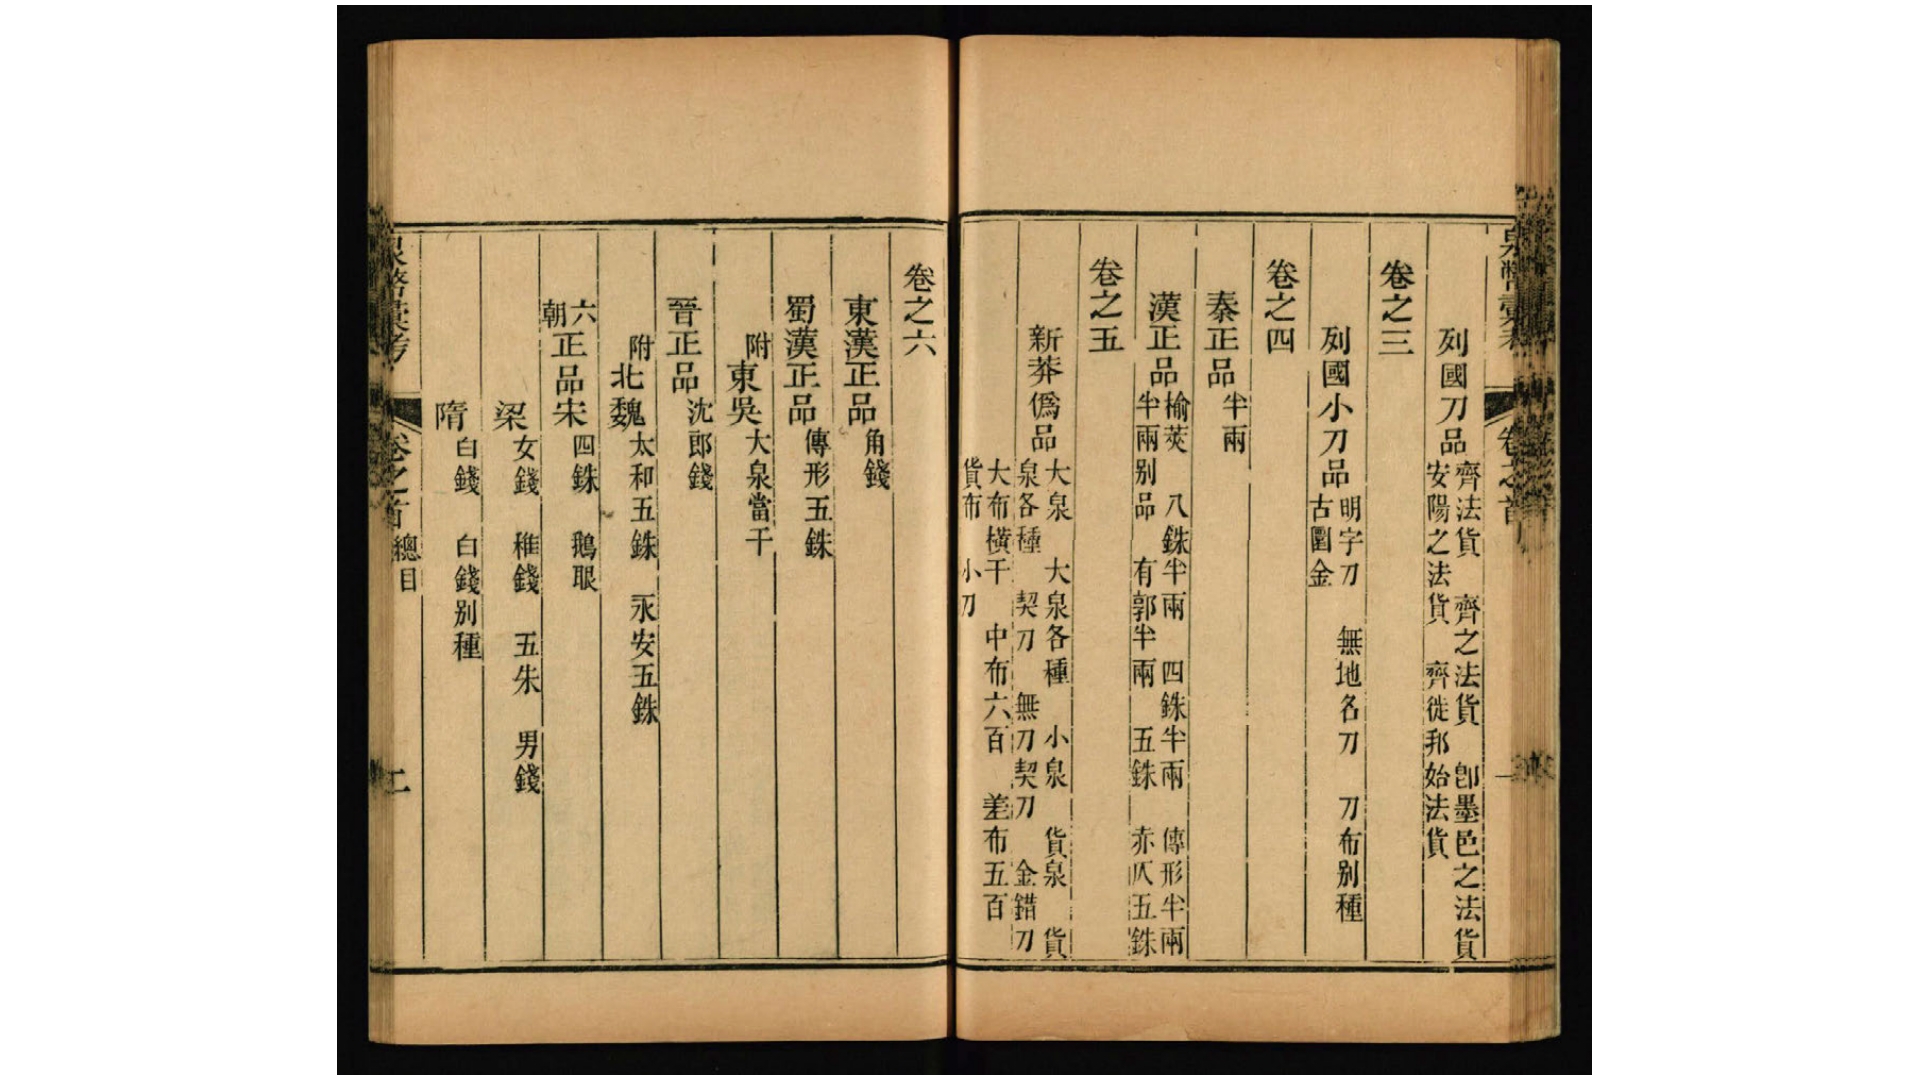 泉幣彙考 卷之首 一
列國刀品 齊法貨 齊之法貨 卽墨邑之法貨
安陽之法貨 齊徙邦始法貨
卷之三
列國小刀品 明字刀 無地名刀 刀布別種
古圜金
卷之四
秦正品 半兩
漢正品 榆莢 八銖半兩 四銖半兩 傳形半兩
半兩別品 有郭半兩 五銖 赤仄五銖
卷之五
新莽僞品 大泉 大泉各種 小泉 貨泉 貨
泉各種 契刀 無刀契刀 金錯刀
大布橫千 中布六百 差布五百
貨布 小刀
卷之六
東漢正品 角錢
蜀漢正品 傳形五銖
附東吳 大泉當千
晉正品 沈郎錢
附北魏 太和五銖 永安五銖
六朝正品宋 四銖 鵝眼
梁 女錢 稚錢 五朱 男錢
隋 白錢 白錢別種
泉幣彙考 卷之首 總目 二